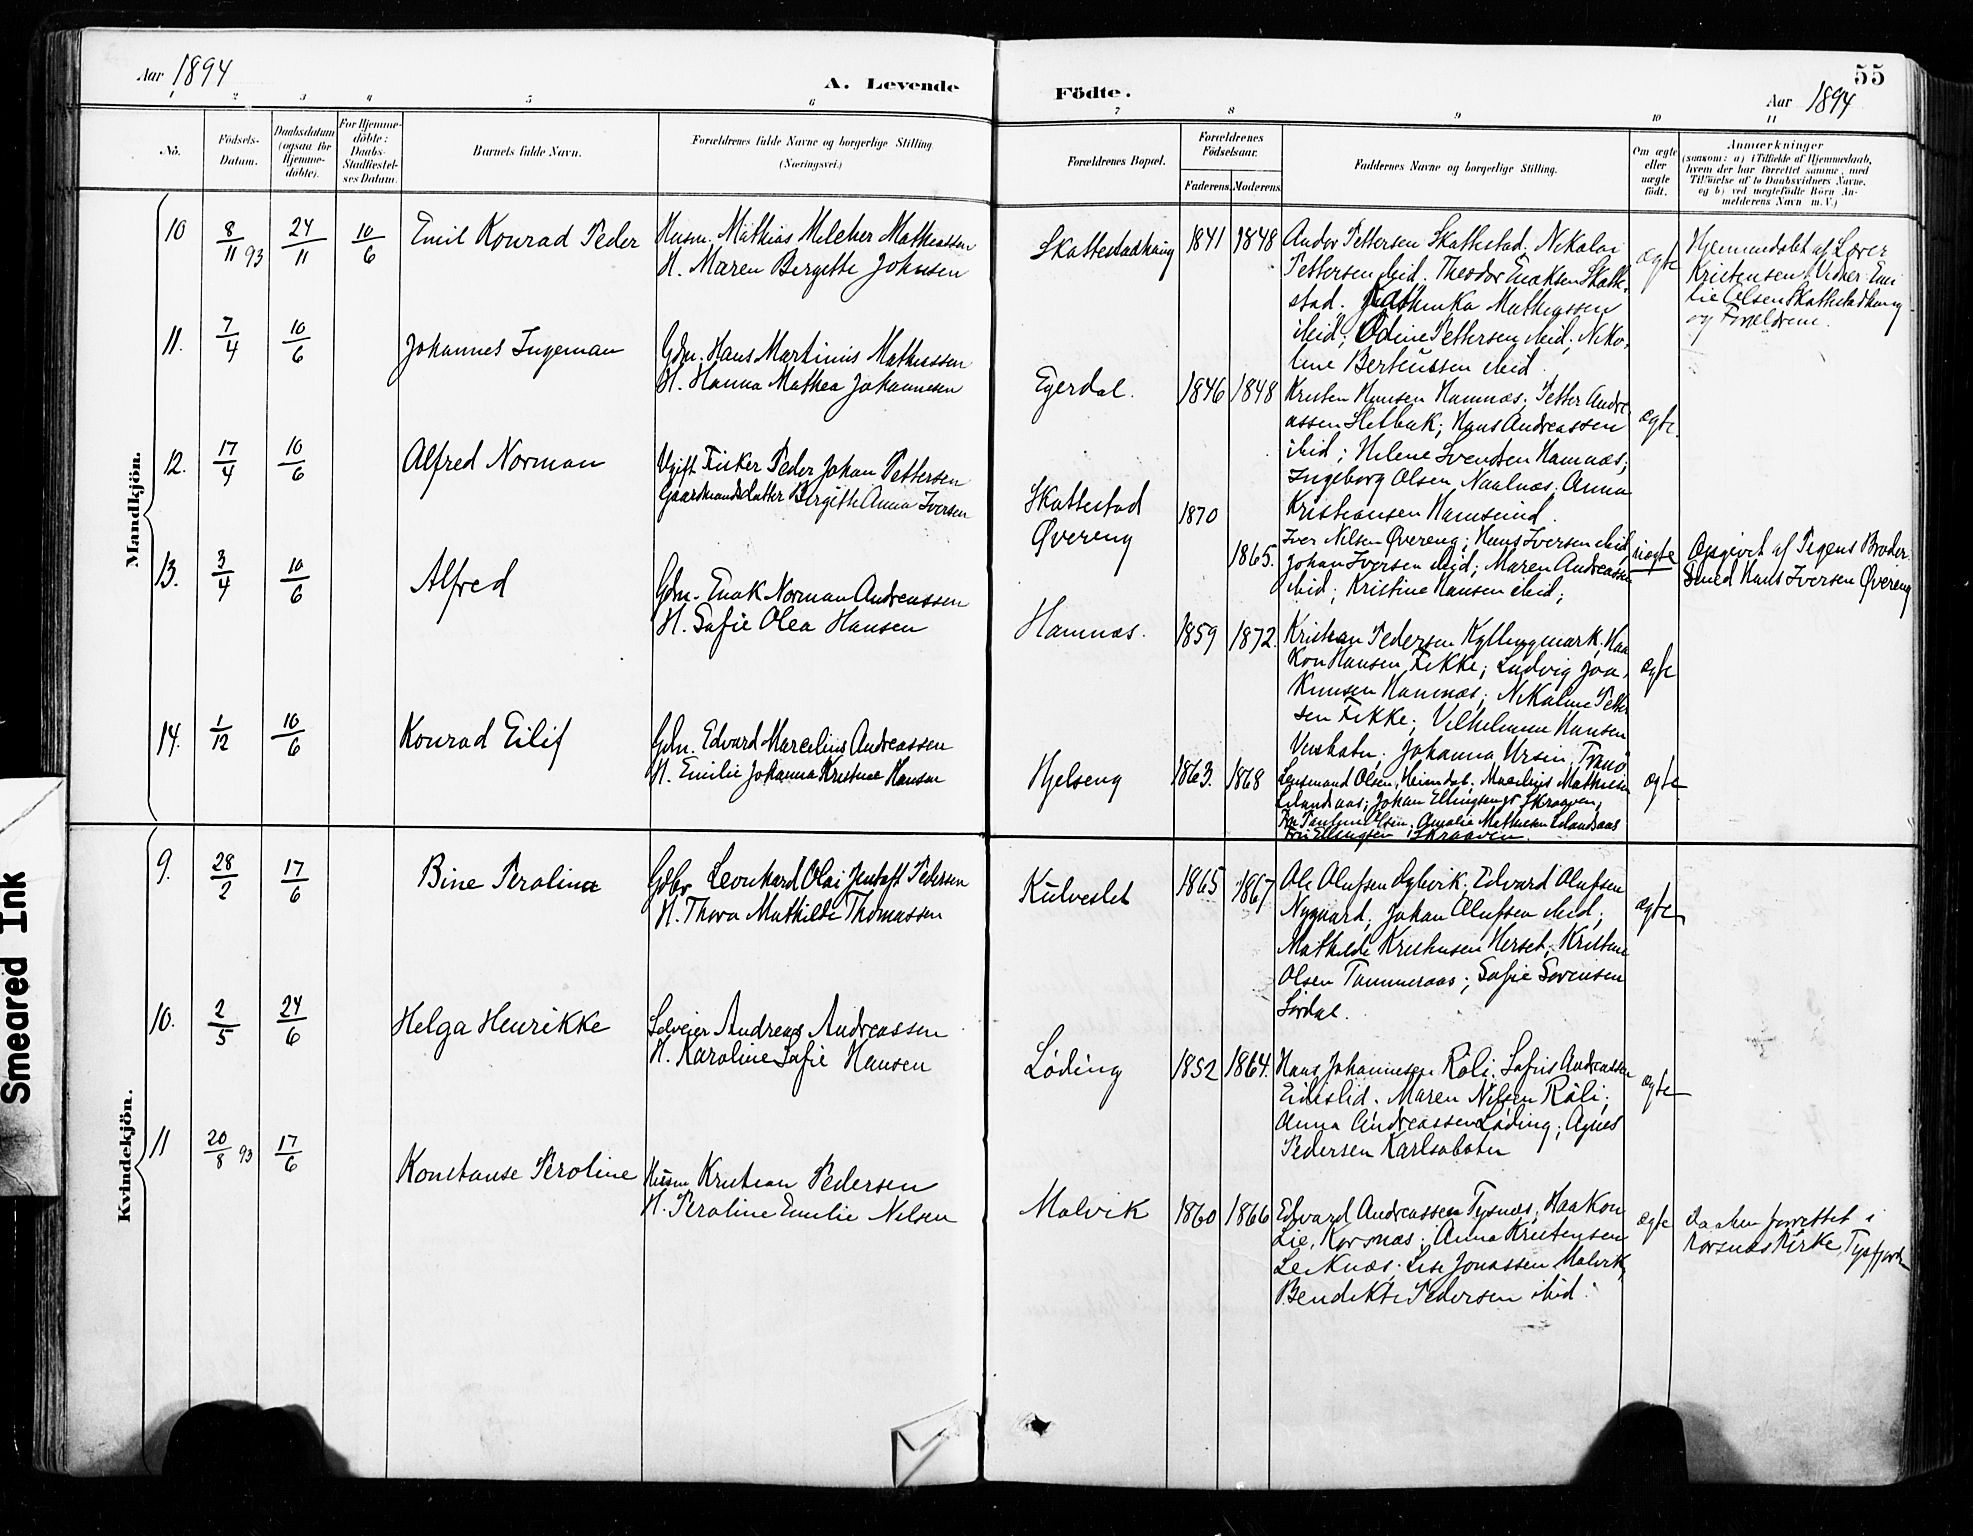 Aar 1894
A. Levende Födte.
55
Aar 1894
2 3 4 5 6 7 8 9 10 11
No.
Födsels-Datum.
Daabsdatum (ogsaa for Hjemmedöbte).
For Hjemmedöbte: Daabs-Stadfæstelses Datum.
Barnets fulde Navn.
Forældrenes fulde Navne og borgerlige Stilling (Næringsvei.)
Forældrenes Bopæl.
Forældrenes Födselsaar.
Faderens. Moderens.
Faddernes Navne og borgerlige Stilling.
Om ægte eller uægte födt.
Anmærkninger
(saasom: a) i Tilfælde af Hjemmedaab,
hvem der har forrettet samme, med
Tilföielse af to Daabsvidners Navne,
og b) ved uægtefödte Börn Anmelderens Navn m. V.)
Mandkjön.
10 8/11 93 24/11 10/6 Emil Konrad Peder
Husm. Mathias Melcher Mathiassen
H. Maren Bergitte Johnsen
Skattestadhaug 1841 1848
Andor Pettersen Skattestad. Nikolai
Pettersen ibid; Theodor Enoksen Skatte-
stad. Jathinka Mathiassen
ibid; Odine Pettersen ibid; Niko-
line Berteussen ibid.
ægte
Hjemmedøbt af Lærer
Kristensen. Vidner: Emi
lie Olsen Skattestadhaug
og Forældrene.
11. 7/4 10/6 Johannes Ingeman
Gdm. Hans Martinus Mathiassen
H. Hanna Mathea Johannesen
Egerdal. 1846 1848
Kristen Hansen Hamnæs; Petter Andre-
assen Stelbak; Hans Andreassen
ibid; Helene Svendsen Hamnæs;
Ingeborg Olsen Naalnæs. Anna
Kristiansen Hamsund.
ægte.
12. 17/4 10/6 Alfred Norman
Ugift Fisker Peder Johan Pettersen
Gaardmandsdatter Birgitte Anna Iversen
Skattestad 1870
Øvereng 1865.
Iver Nilsen Øvereng; Hans Iversen ibid,
Johan Iversen ibid; Maren Andreassen
ibid; Kristine Hansen ibid;
uægte
Opgivet af Pigens Broder
Smed Hans Iversen Øvereng
13. 3/4 10/6 Alfred
Gdm. Enok Norman Andreassen
H. Sofie Olea Hansen
Hamnæs. 1859 1872.
Kristian Pedersen Kyllingmark; Haa
kon Hansen Fikke; Ludvig Joa-
kimsen Hamnæs; Nikoline Petter
sen Fikke; Vilhelmine Hansen
Johanna Ursin, Tranø
ægte
14. 1/12 10/6 Konrad Eilif
Gdm. Edvard Marcelius Andreassen
H. Emilie Johanna Kristine Hansen
Hjelseng 1863. 1868
Lensmand Olsen, Heimdal; Marelius Mathisen
Lilandsaas; Johan Ellingsen Skraaven,
Fru Pauline Olsen, Amalie Mathisen Lilandsaas
Fru Ellingsen Skraaven.
ægte.
Kvindekjön.
9. 28/2 17/6 Bine Peroline
Gdbr Leonhard Olai Jentoft Pedersen
H. Thora Mathilde Thomassen
Kulveslet 1865 1867
Ole Olufsen Dybvik; Edvard Olufsen
Nygaard; Johan Olufsen ibid;
Mathilde Kristensen Herset; Kristine
Olsen Tømmeraas; Sofie Sørensen
Sørdal.
ægte
10. 2/5 24/6 Helga Henrikke
Selveier Andreas Andreassen
H. Karoline Sofie Hansen
Løding 1852 1864.
Hans Johannesen Røli; Sofus Andreassen
Eideslid. Maren Nilsen Røli;
Anna Andreassen Løding; Agnes
Pedersen Karlsøbotn
ægte
11 20/8 93 17/6 Konstanse Peroline
Husm Kristian Pedersen
H. Peroline Emilie Nilsen
Molvik 1860 1866
Edvard Andreassen Tysnæs; Haakon
Lie, Korsnæs; Anna Kristensen
Leiknæs. Lise Jonassen Molvik,
Bendikte Pedersen ibid.
ægte
Daaben forrettet i
Korsnæs Kirke, Tysfjord
Smeared Ink